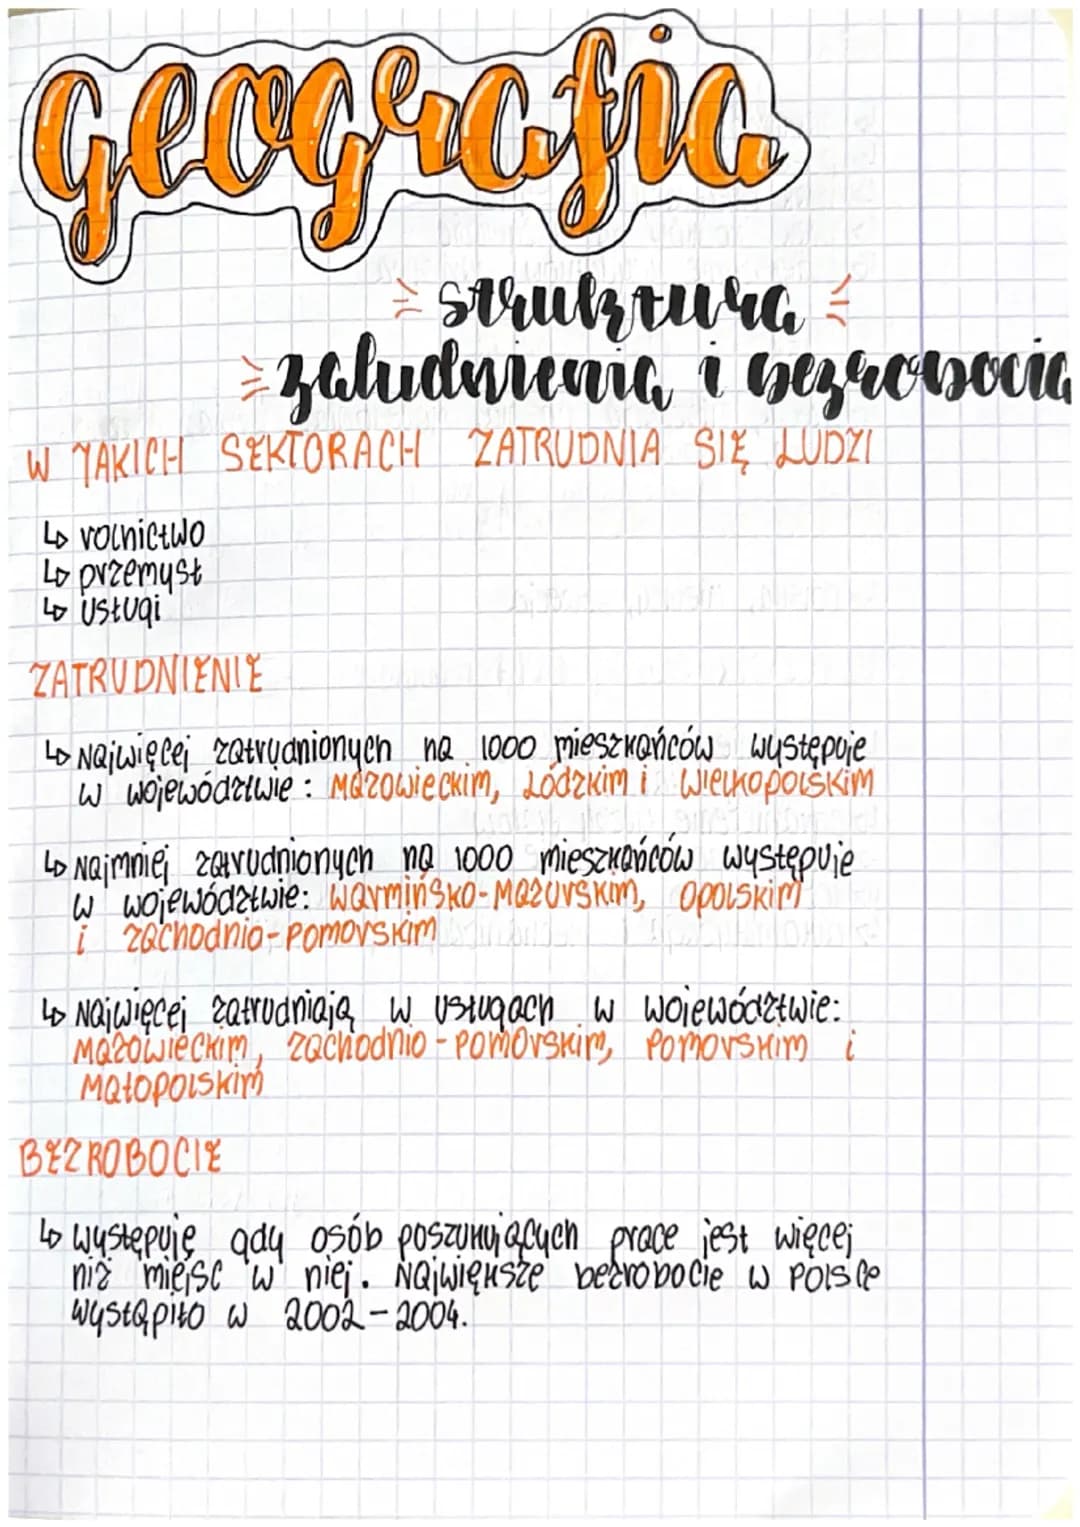 Geografia
struktura
zaludnienia i bezrobocia
W JAKICH SEKTORACH ZATRUDNIA SIĘ LUDZI
↳ rolnictwo
↳ przemysł
↳ usługi
ZATRUDNIENIE
↳ Najwięcej zatrudnionych na 1000 mieszkańców występuje
w województwie: mazowieckim, łódzkim i wielkopolskim
↳ Najmniej zatrudnionych na 1000 mieszkańców występuje
w województwie: warmińsko-mazurskim, opolskim
i zachodnio-pomorskim
↳ Najwięcej zatrudniają w usługach w województwie:
mazowieckim, zachodnio-pomorskim, pomorskim i
małopolskim
BEZROBOCIE
↳ występuje gdy osób poszukujących prace jest więcej
niż miejsc w niej. Największe bezrobocie w Polsce
wystąpiło w 2002-2004.